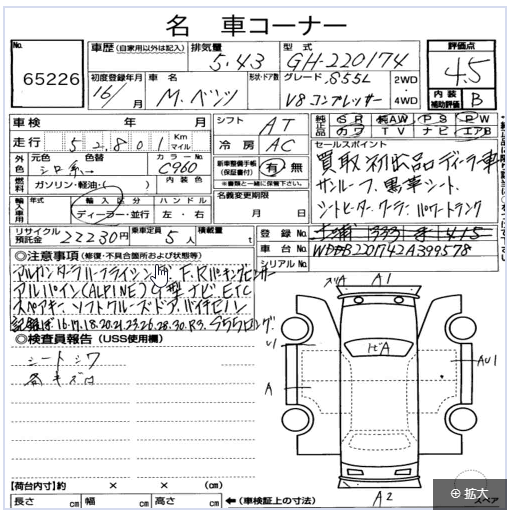 名 車コーナー
No. 65226
車歴 (自家用以外は記入) 排気量 5.43 型式 GH-220174 評価点 4.5
初度登録年月 16/ 月 車名 M.ベンツ 形状・ドア数 グレード S55L V8 コンプレッサー 2WD・4WD 内装補助評価 B
車検 年 月 シフト AT 純正品 SR 純AW PS PW カワ TV ナビ エアB
走行 52801 Km マイル 冷房 AC セールスポイント
外色 元色 シロ系 色替 カラーNo. C960 内装色 新車整備手帳(保証書付) 有・無 買取初出品ディーラ車
燃料 ガソリン・軽油・( ) ※書類と一緒に保管下さい サンルーフ、黒革シート、
輸入車用 年式 輸入区分 ディーラー・並行 ハンドル 左・右 名義変更期限 月 日 シートヒーター クーラー パワートランク
リサイクル預託金 22230円 乗車定員 5人 積載量 t 登録No.
車台No. WDB2201742A399578
シリアルNo.
◎注意事項 (修復・不具合箇所および状態等)
F.Rパーキングセンサー
アルパイン(ALPINE) ナビ ETC
記録簿 16.17.18.20.21.23.26.28.30.R3.
◎検査員報告 (USS使用欄)
シートシワ
各キズ
A1
U1
A
AU1
A2
【荷台内寸】約 × × (cm)
長さ cm 幅 cm 高さ cm ←(車検証上の寸法) スペア
拡大